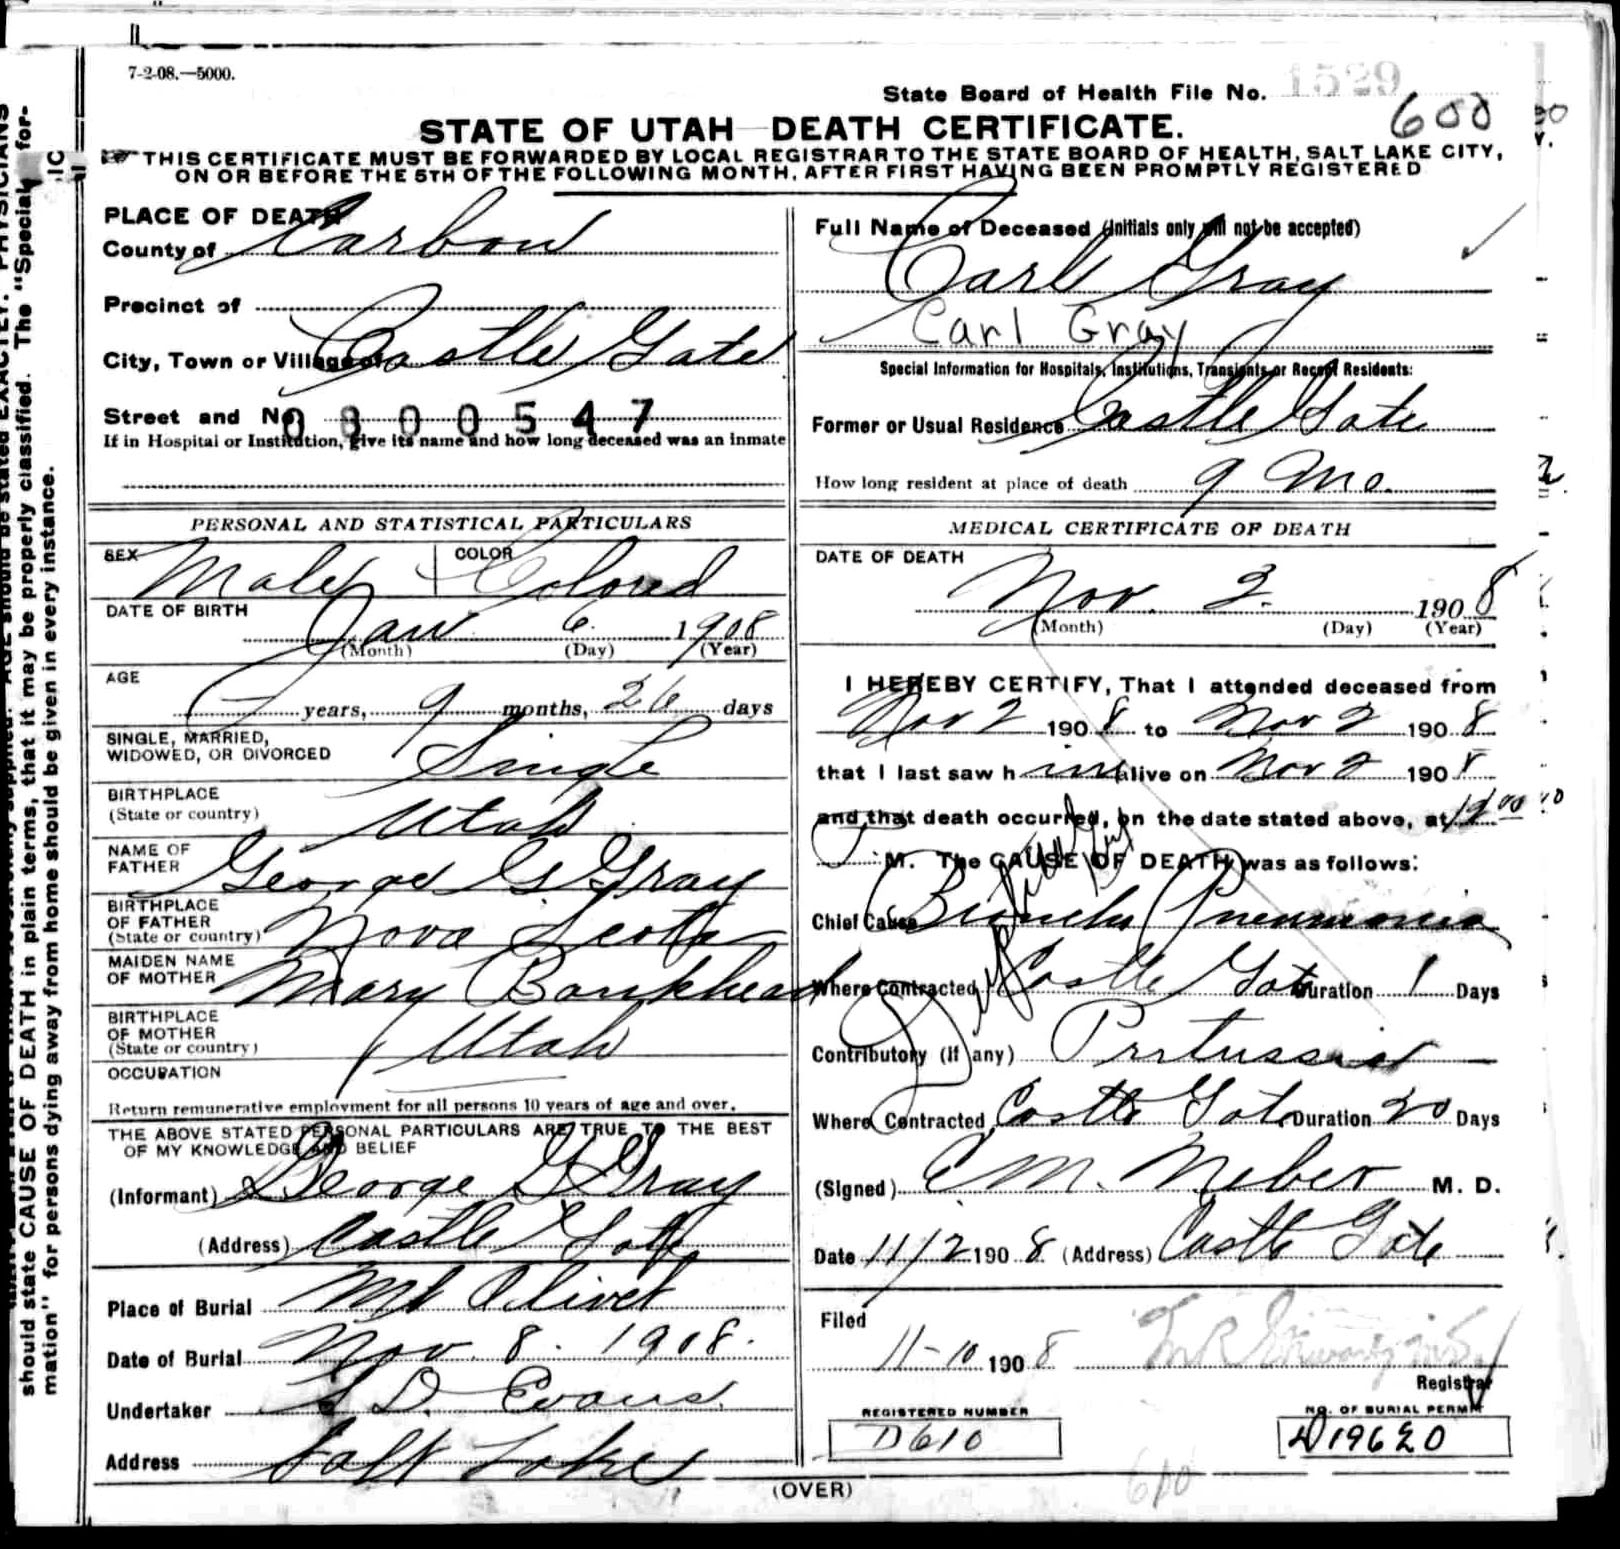 7-2-08.—5000.
State Board of Health File No. 1529
600
STATE OF UTAH—DEATH CERTIFICATE.
THIS CERTIFICATE MUST BE FORWARDED BY LOCAL REGISTRAR TO THE STATE BOARD OF HEALTH, SALT LAKE CITY,
ON OR BEFORE THE 5TH OF THE FOLLOWING MONTH, AFTER FIRST HAVING BEEN PROMPTLY REGISTERED
PLACE OF DEATH
County of Carbon
Precinct of
City, Town or Village of Castle Gate
Street and No 0800547
If in Hospital or Institution, give its name and how long deceased was an inmate
Full Name of Deceased (Initials only will not be accepted)
Carl Gray
Carl Gray
Special Information for Hospitals, Institutions, Transients or Recent Residents:
Former or Usual Residence Castle Gate
How long resident at place of death 9 Mo.
PERSONAL AND STATISTICAL PARTICULARS
SEX Male COLOR Colored
DATE OF BIRTH
Jan 6 1908
(Month) (Day) (Year)
AGE
— years, 9 months, 26 days
SINGLE, MARRIED,
WIDOWED, OR DIVORCED Single
BIRTHPLACE
(State or country) Utah
NAME OF
FATHER George G Gray
BIRTHPLACE
OF FATHER
(State or country) Nova Scota
MAIDEN NAME
OF MOTHER Mary Bankhead
BIRTHPLACE
OF MOTHER
(State or country) Utah
OCCUPATION
Return remunerative employment for all persons 10 years of age and over.
THE ABOVE STATED PERSONAL PARTICULARS ARE TRUE TO THE BEST
OF MY KNOWLEDGE AND BELIEF
(Informant) George G Gray
(Address) Castle Gate
Place of Burial Mt Olivet
Date of Burial Nov. 8. 1908.
Undertaker S D. Evans.
Address Salt Lake
MEDICAL CERTIFICATE OF DEATH
DATE OF DEATH
Nov. 2. 1908
(Month) (Day) (Year)
I HEREBY CERTIFY, That I attended deceased from
Nov 2 1908 to Nov 2 1908
that I last saw him alive on Nov 2 1908
and that death occurred, on the date stated above, at
M. The CAUSE OF DEATH was as follows:
Chief Cause Broncho Pneumonia
Where Contracted Castle Gate Duration 1 Days
Contributory (If any) Pertussis
Where Contracted Castle Gate Duration 20 Days
(Signed) C M. M. D.
Date 11/2 1908 (Address) Castle Gate
Filed
11-10 1908
Registrar
REGISTERED NUMBER
D610
NO. OF BURIAL PERMIT
D19620
(OVER)
610
should state CAUSE OF DEATH in plain terms, that it may be properly classified. The "Special
mation" for persons dying away from home should be given in every instance.